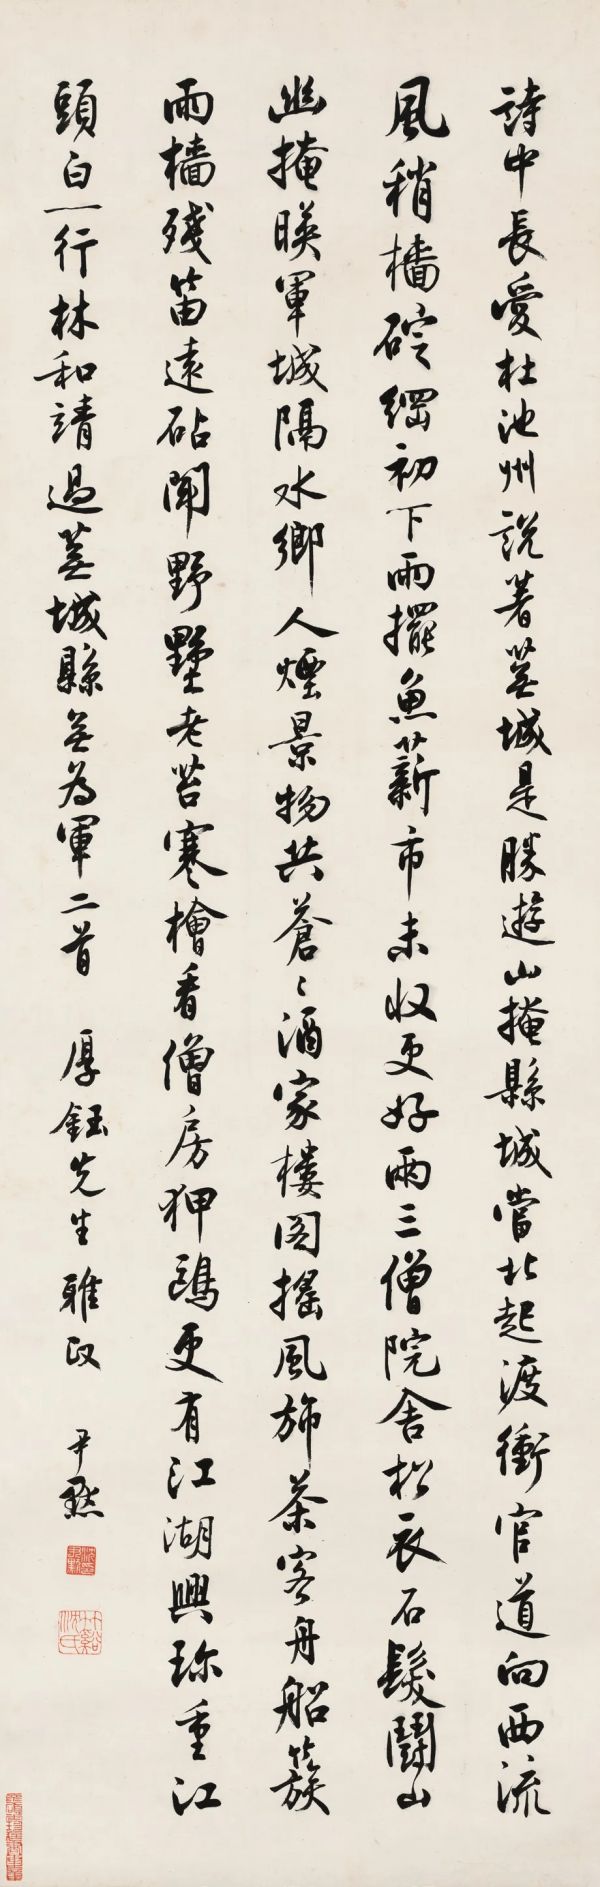 詩中長愛杜池州說著蕪城是勝遊山掩縣城當北起渡衝官道向西流
風稍檣碇綱初下雨擺魚薪市未收更好兩三僧院舍松衣石髮鬪山
幽掩暎軍城隔水鄉人煙景物共蒼〻酒家樓閣搖風旆茶客舟船簇
雨檣殘笛遠砧聞野墅老苔寒檜看僧房狎鷗更有江湖興珍重江
頭白一行林和靖過蕪城縣無為軍二首 厚鈺先生雅政 尹默
沈尹默
竹谿沈氏